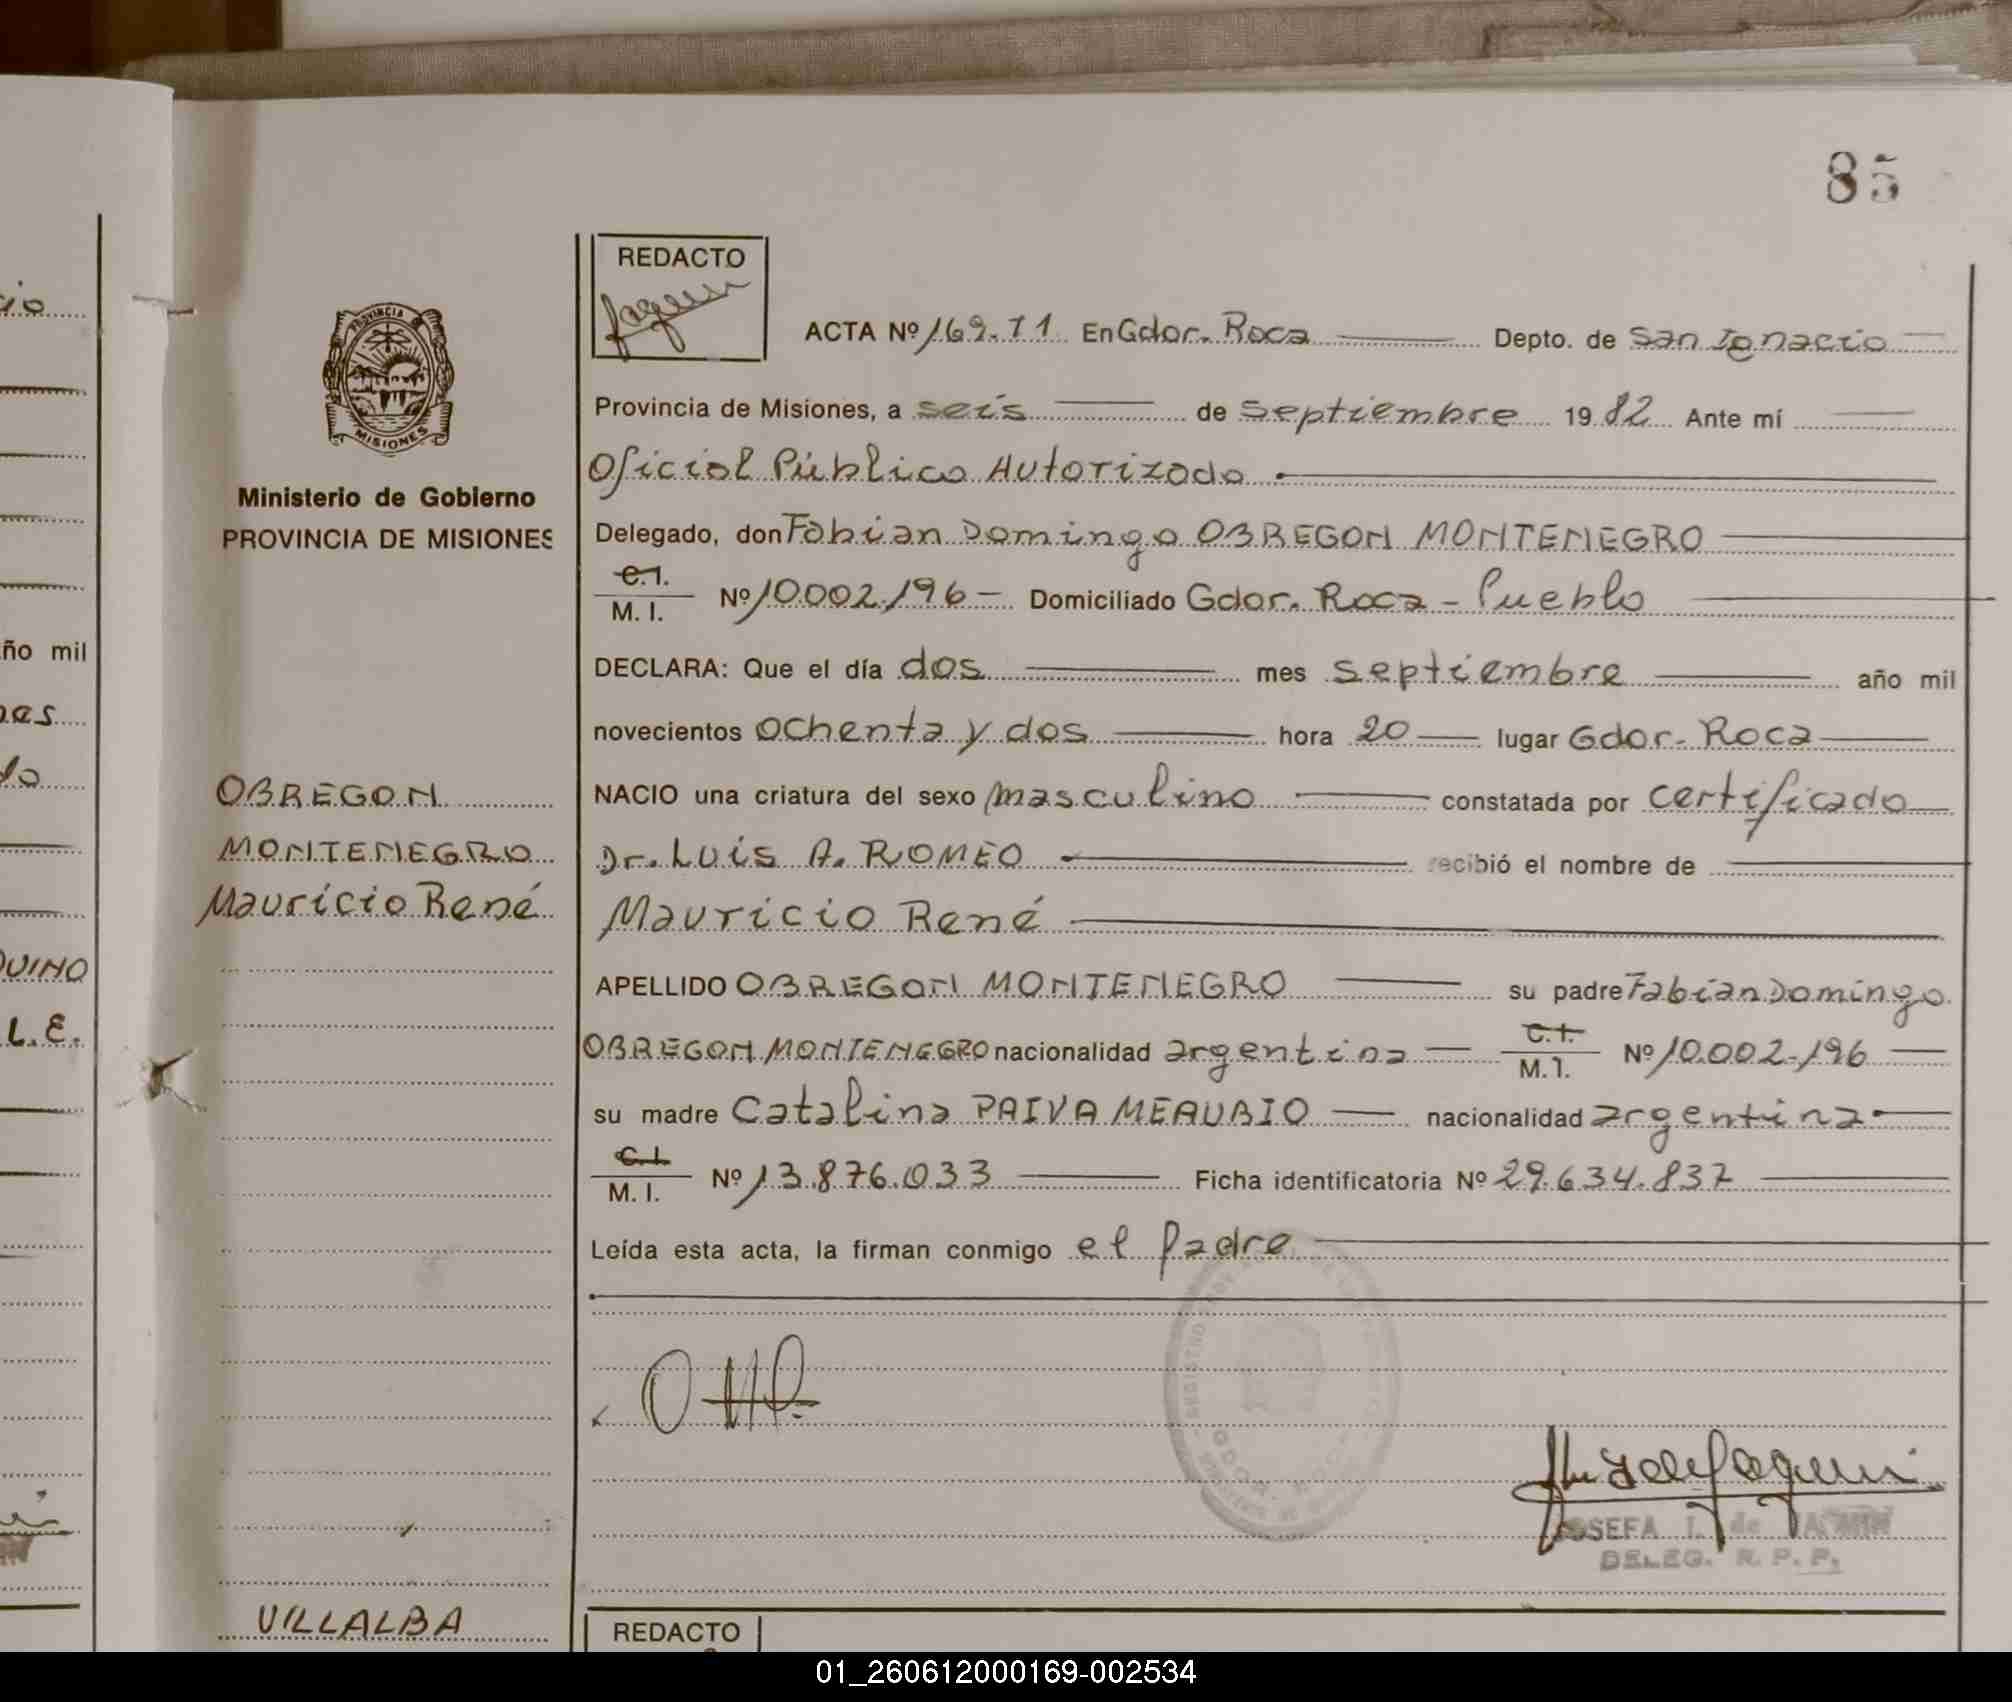 85
REDACTO
ACTA Nº 169.T1 En Gdor. Roca Depto. de San Ignacio
PROVINCIA
MISIONES
Provincia de Misiones, a seis de septiembre 1982 Ante mí
Oficial Público Autorizado
Ministerio de Gobierno
PROVINCIA DE MISIONES
Delegado, don Fabian Domingo OBREGON MONTENEGRO
C.I.
M. I. Nº 10.002.196 - Domiciliado Gdor. Roca - Pueblo
DECLARA: Que el día dos mes septiembre año mil
novecientos ochenta y dos hora 20 lugar Gdor. Roca
OBREGON
MONTENEGRO
Mauricio René
NACIO una criatura del sexo masculino constatada por certificado
Dr. Luis A. ROMEO recibió el nombre de
Mauricio René
APELLIDO OBREGON MONTENEGRO su padre Fabian Domingo
OBREGON MONTENEGRO nacionalidad argentina C.I. M.I. Nº 10.002.196
su madre Catalina PAIVA MEAUBIO nacionalidad argentina
C.I.
M. I. Nº 13.876.033 Ficha identificatoria Nº 29.634.837
Leída esta acta, la firman conmigo el padre
JOSEFA I. de
DELEG. R. P. P.
VILLALBA
REDACTO
ño mil
UINO
L.E.
01_260612000169-002534